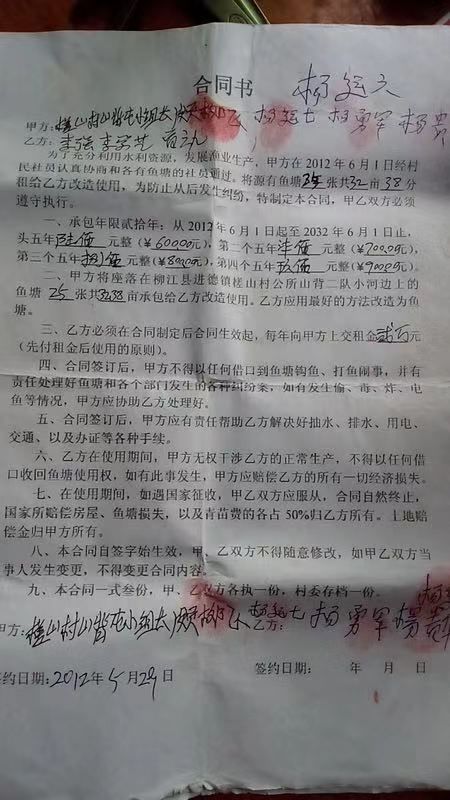 合同书
杨
甲方:
乙方:李强
为了充分利用水利资源,发展渔业生产,甲方在 2012 年 6 月 1 日经村
民社员认真协商和各有鱼塘的社员通过。将源有鱼塘25张共32亩38分
租给乙方改造使用,为防止从后发生纠纷,特制定本合同,甲乙双方必须
遵守执行。
一、承包年限贰拾年:从2012年6月1日起至 2032 年 6 月 1 日止,
头五年陆佰元整(¥600.00元),第二个五年柒佰元整(¥700.00元),
第三个五年捌佰元整(¥800.00元),第四个五年玖佰元整(¥900.00元)。
二、甲方将座落在柳江县进德镇槎山村公所山背二队小河边上的
鱼塘 25 张共32.38亩承包给乙方改造使用。乙方应用最好的方法改造为鱼
塘。
三、乙方必须在合同制定后合同生效起,每年向甲方上交租金贰万元
(先付租金后使用的原则)。
四、合同签订后,甲方不得以任何借口到鱼塘钩鱼、打鱼闹事,并有
责任处理好鱼塘和各个部门发生的各种纠纷案,如有发生偷、毒、炸、电
鱼等情况,甲方应协助乙方处理好。
五、合同签订后,甲方应有责任帮助乙方解决好抽水、排水、用电、
交通、以及办证等各种手续。
六、乙方在使用期间,甲方无权干涉乙方的正常生产,不得以任何借
口收回鱼塘使用权,如有此事发生,甲方应赔偿乙方的所有一切经济损失。
七、在使用期间,如遇国家征收,甲乙双方应服从,合同自然终止,
国家所赔偿房屋、鱼塘损失,以及青苗费的各占 50%归乙方所有。土地赔
偿金归甲方所有。
八、本合同自签字始生效,甲、乙双方不得随意修改,如甲乙双方当
事人发生变更,不得变更合同内容。
九、本合同一式叁份,甲、乙双方各执一份,村委存档一份。
甲方: 乙方:杨勇军
签约日期:2012年5月29日 签约日期: 年 月 日